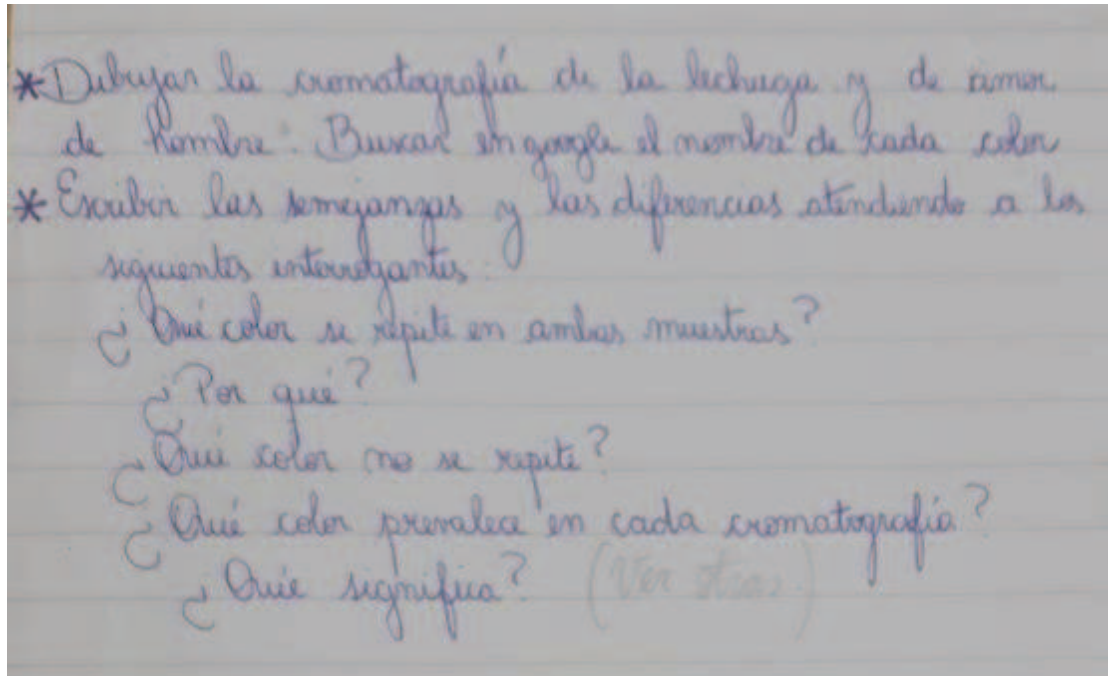 * Dibujar la cromatografía de la lechuga y de amor
de hombre. Buscar en google el nombre de cada color
* Escribir las semejanzas y las diferencias atendiendo a los
siguientes interrogantes:
¿Qué color se repite en ambas muestras?
¿Por qué?
¿Qué color no se repite?
¿Qué color prevalece en cada cromatografía?
¿Qué significa? (Ver otras)